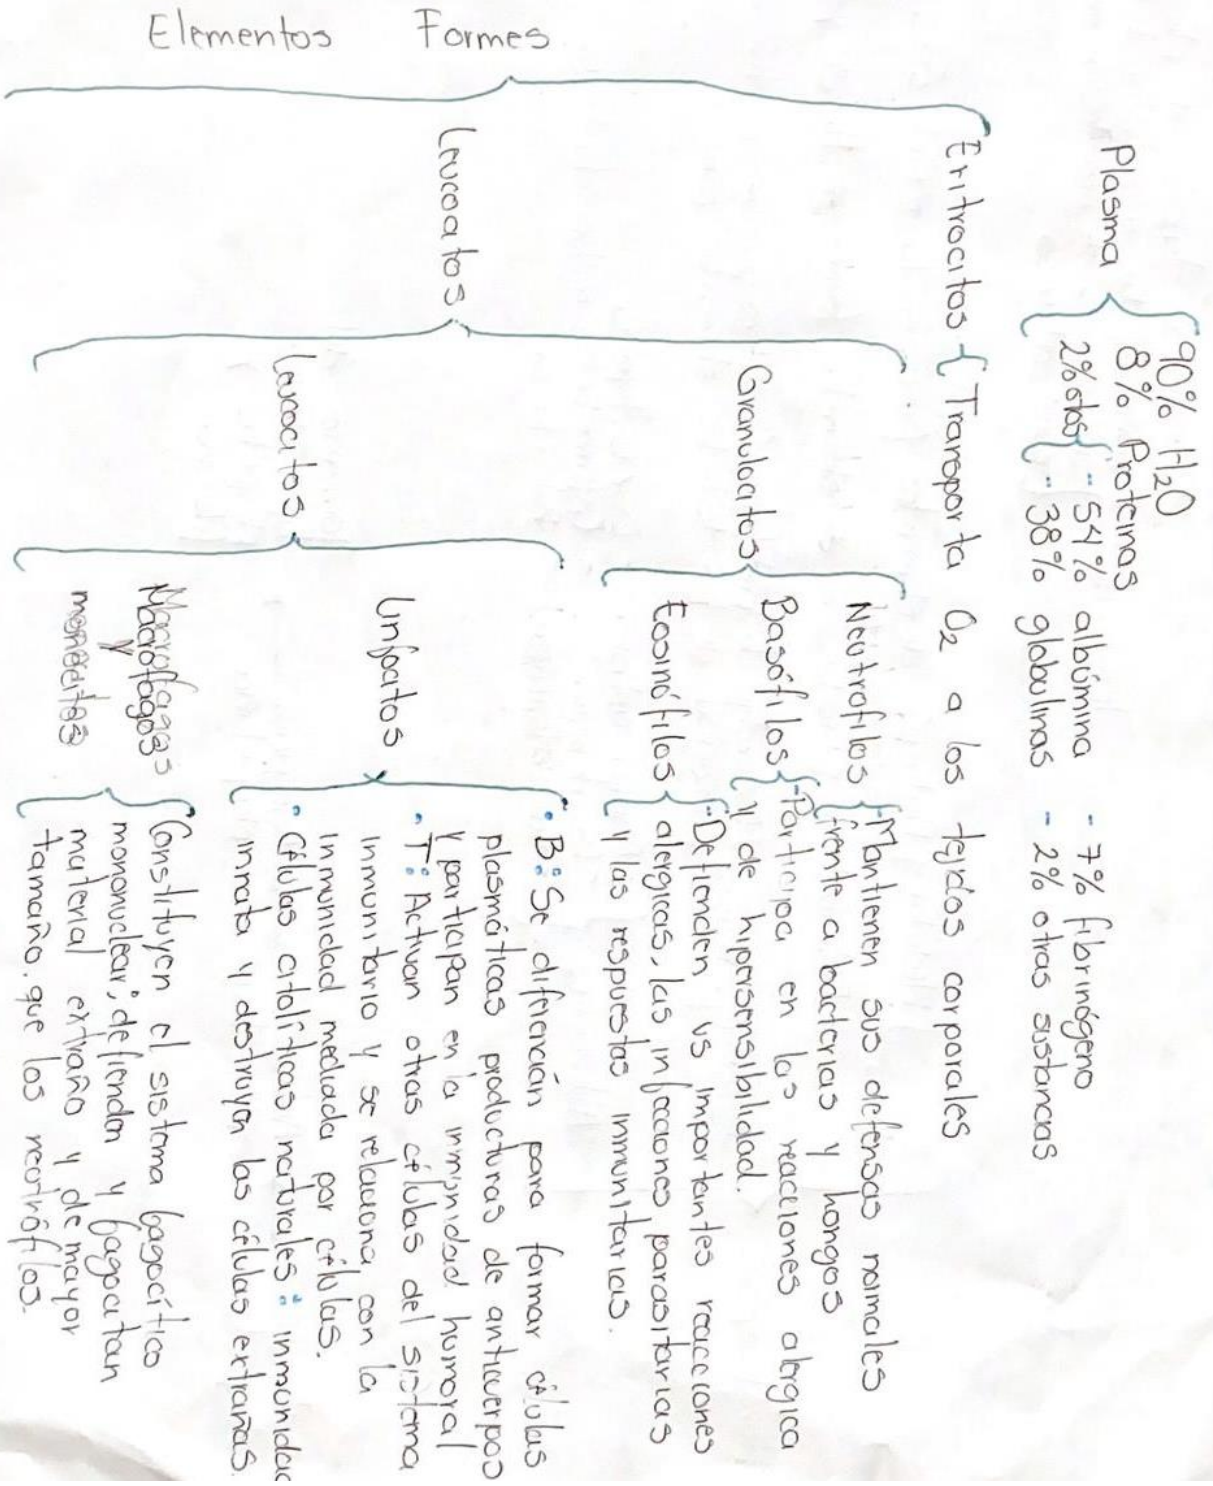 Elementos Formes
Plasma
90% H2O
8% Proteinas
2% otros
- 54% albúmina - 7% fibrinógeno
- 38% globulinas - 2% otras sustancias
Eritrocitos
Transporta O2 a los tejidos corporales
Leucocitos
Granulocitos
Neutrofilos
- Mantienen sus defensas normales
frente a bacterias y hongos
Basófilos
- Participa en las reacciones alergica
y de hipersensibilidad.
Eosinófilos
- Defienden vs importantes reacciones
alergicas, las infecciones parasitarias
y las respuestas inmunitarias.
Leucocitos
Linfocitos
• B: Se diferencian para formar células
plasmáticas producturas de anticuerpos
y participan en la inmunidad humoral
• T: Actuan otras células del sistema
inmunitario y se relaciona con la
inmunidad mediada por células.
• Células citolíticas naturales: inmunidad
innata y destruyen las células extrañas.
Macrófagos
y
monocitos
Constituyen el sistema fagocítico
mononuclear; defienden y fagocitan
material extraño y de mayor
tamaño que los neutrófilos.